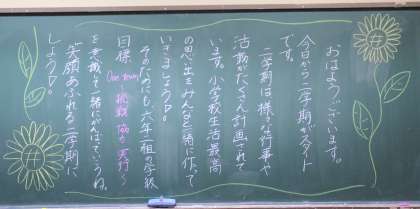 おはようございます。
今日から二学期がスタート
です。
二学期は様々な行事や
活動がたくさん計画されて
います。小学校生活最高
の思い出をみんなと一緒に作って
いきましょうね。
そのためにも、六年二組の学級
目標 One team 〜挑戦 協力 実行〜
を意識して一緒にがんばっていこうね。
笑顔あふれる二学期に
しようね。